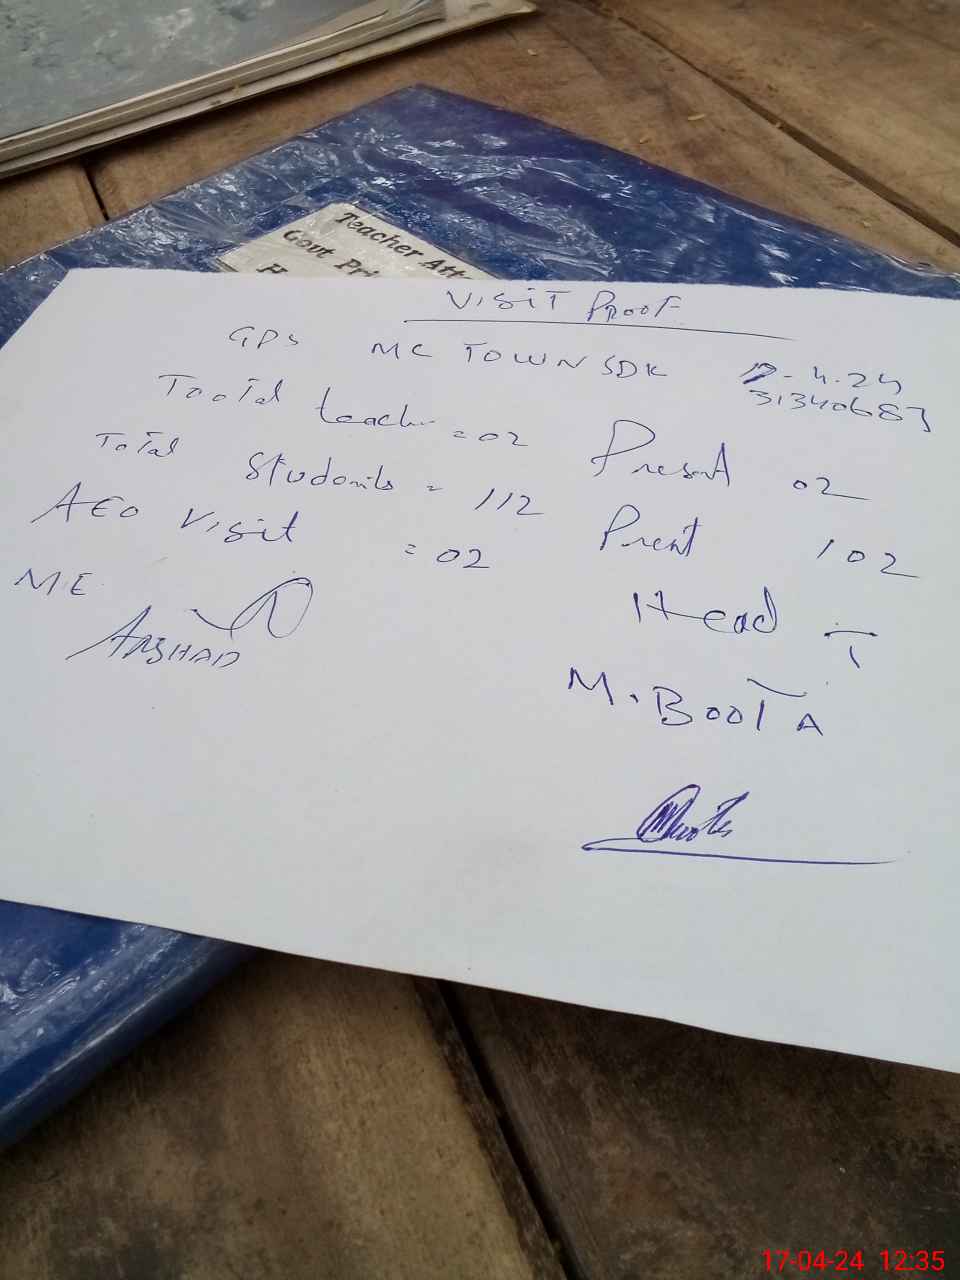 Teacher Att
Govt Pri
H
VISIT PROOF
GPS MC TOWN SDK -4.24
31340683
Tootal teach = 02 Present 02
Total Students = 112 Prent 102
AEO Visit = 02
ME Head T
ARSHAD M. BOOTA
17-04-24 12:35